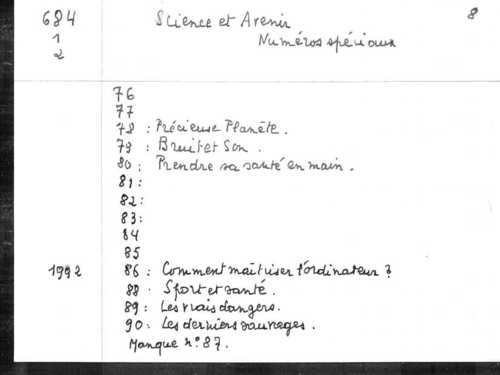 684 Science et Avenir 8
1 Numéros spéciaux
2
76
77
78 : Précieuse Planète.
79 : Bruit et Son.
80 : Prendre sa santé en main.
81 :
82 :
83 :
84
85
1992 86 : Comment maîtriser l'ordinateur ?
88 . Sport et santé.
89 : Les vrais dangers.
90 : Les derniers sauvages.
Manque n° 87.